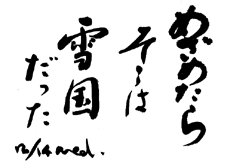 めざめたら
そこは
雪国
だった
12/14 wed.